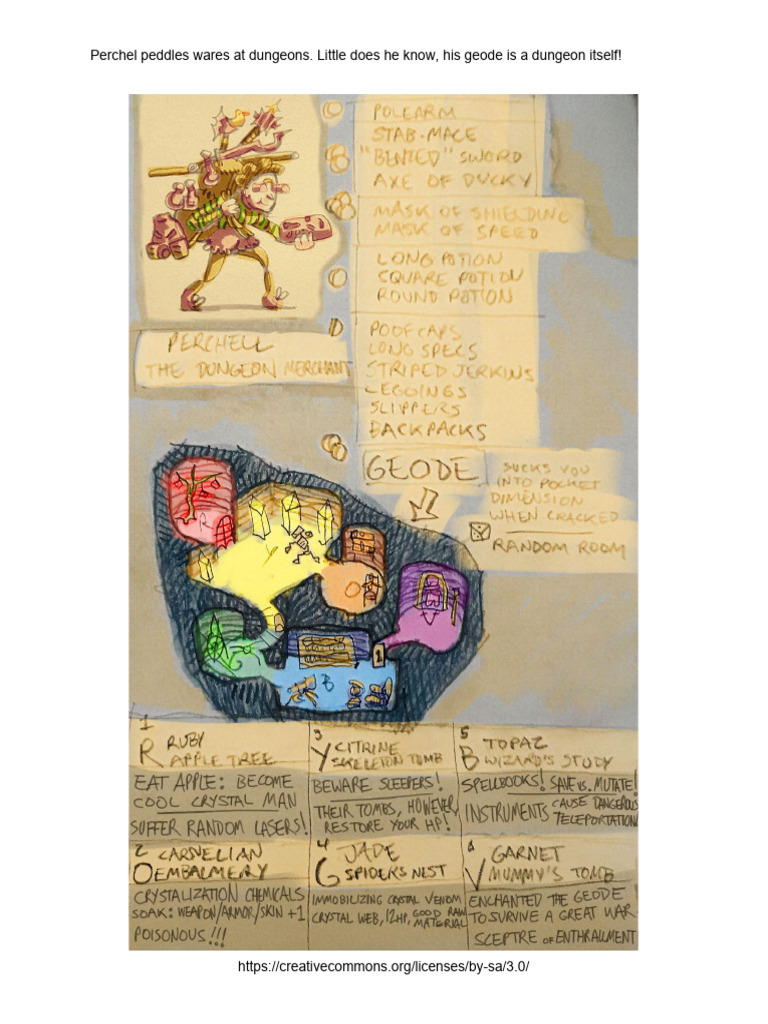 Perchel peddles wares at dungeons. Little does he know, his geode is a dungeon itself!
POLEARM
STAB-MACE
"BENTED" SWORD
AXE OF DUCKY
MASK OF SHIELDING
MASK OF SPEED
LONG POTION
SQUARE POTION
ROUND POTION
PERCHELL
THE DUNGEON MERCHANT
POOFCAPS
LONG SPECS
STRIPED JERKINS
LEGGINGS
SLIPPERS
BACKPACKS
GEODE
SUCKS YOU
INTO POCKET
DIMENSION
WHEN CRACKED
RANDOM ROOM
R
O
B
1
1
R RUBY
APPLE TREE
EAT APPLE: BECOME
COOL CRYSTAL MAN
SUFFER RANDOM LASERS!
3
Y CITRINE
SKELETON TOMB
BEWARE SLEEPERS!
THEIR TOMBS, HOWEVER,
RESTORE YOUR HP!
5
B TOPAZ
WIZARD'S STUDY
SPELLBOOKS! SAVE VS. MUTATE!
INSTRUMENTS CAUSE DANGEROUS
TELEPORTATION
2
O CARNELIAN
EMBALMERY
CRYSTALIZATION CHEMICALS
SOAK: WEAPON/ARMOR/SKIN +1
POISONOUS!!!
4
G JADE
SPIDERS NEST
IMMOBILIZING CRYSTAL VENOM
CRYSTAL WEB, 12HP, GOOD RAW
MATERIAL
6
V GARNET
MUMMY'S TOMB
ENCHANTED THE GEODE
TO SURVIVE A GREAT WAR
SCEPTRE OF ENTHRALLMENT
https://creativecommons.org/licenses/by-sa/3.0/